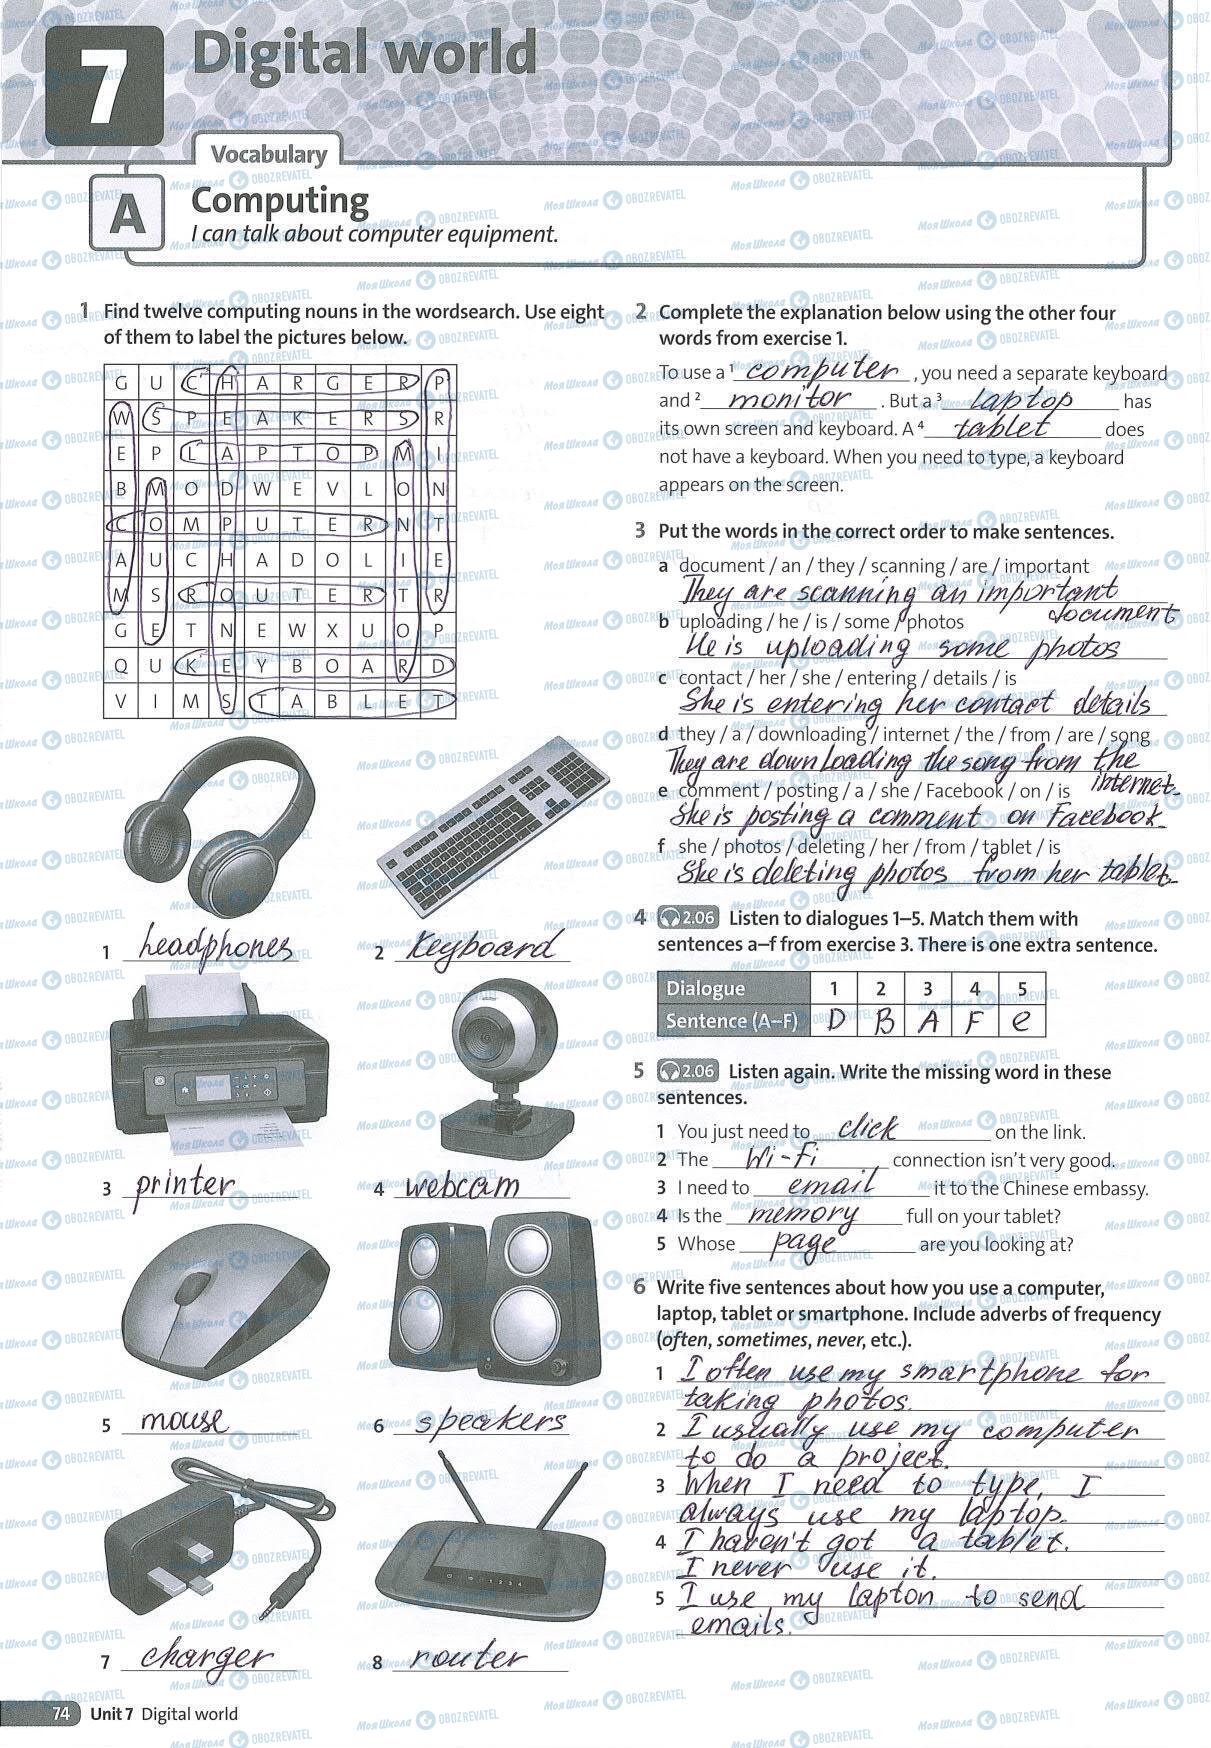 7
Digital world
Vocabulary
A
Computing
I can talk about computer equipment.
1 Find twelve computing nouns in the wordsearch. Use eight
of them to label the pictures below.
G U C H A R G E R P
W S P E A K E R S R
E P L A P T O P M I
B M O D W E V L O N
C O M P U T E R N T
A U C H A D O L I E
M S R O U T E R T R
G E T N E W X U O P
Q U K E Y B O A R D
V I M S T A B L E T
1 headphones
2 keyboard
3 printer
4 webcam
5 mouse
6 speakers
7 charger
8 router
2 Complete the explanation below using the other four
words from exercise 1.
To use a ¹ computer , you need a separate keyboard
and ² monitor . But a ³ laptop has
its own screen and keyboard. A ⁴ tablet does
not have a keyboard. When you need to type, a keyboard
appears on the screen.
3 Put the words in the correct order to make sentences.
a document / an / they / scanning / are / important
They are scanning an important
document
b uploading / he / is / some / photos
He is uploading some photos
c contact / her / she / entering / details / is
She is entering her contact details
d they / a / downloading / internet / the / from / are / song
They are downloading the song from the
internet.
e comment / posting / a / she / Facebook / on / is
She is posting a comment on Facebook.
f she / photos / deleting / her / from / tablet / is
She is deleting photos from her tablet.
4 2.06 Listen to dialogues 1–5. Match them with
sentences a–f from exercise 3. There is one extra sentence.
Dialogue 1 2 3 4 5
Sentence (A–F) D B A F e
5 2.06 Listen again. Write the missing word in these
sentences.
1 You just need to click on the link.
2 The Wi-Fi connection isn't very good.
3 I need to email it to the Chinese embassy.
4 Is the memory full on your tablet?
5 Whose page are you looking at?
6 Write five sentences about how you use a computer,
laptop, tablet or smartphone. Include adverbs of frequency
(often, sometimes, never, etc.).
1 I often use my smartphone for
taking photos.
2 I usually use my computer
to do a project.
3 When I need to type, I
always use my laptop.
4 I haven't got a tablet.
I never use it.
5 I use my lapton to send
emails.
74 Unit 7 Digital world
МояШкола OBOZREVATEL